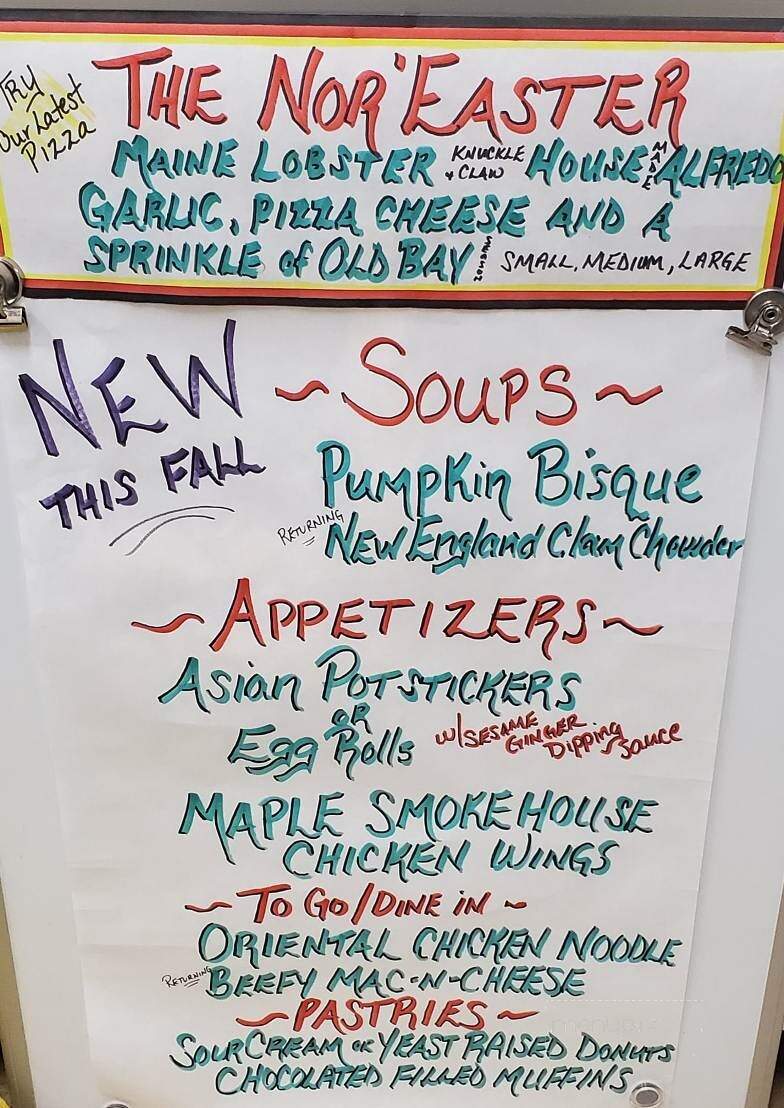 TRY
Our Latest
PIZZA
THE NOR'EASTER
MAINE LOBSTER KNUCKLE + CLAW HOUSE MADE ALFREDO
GARLIC, PIZZA CHEESE AND A
SPRINKLE of OLD BAY SMALL, MEDIUM, LARGE
NEW
THIS FALL
~ SOUPS ~
PUMPKin Bisque
RETURNING NEW England Clam Chowder
~ APPETIZERS ~
Asian POTSTICKERS
OR
Egg Rolls w/SESAME GINGER DiPPing Sauce
MAPLE SMOKEHOUSE
CHICKEN WINGS
~ TO GO/DINE iN ~
ORIENTAL CHICKEN NOODLE
RETURNING BEEFY MAC-N-CHEESE
~ PASTRIES ~
SOUR CREAM OR YEAST RAISED DONUTS
CHOCOLATED FILLED MUFFINS